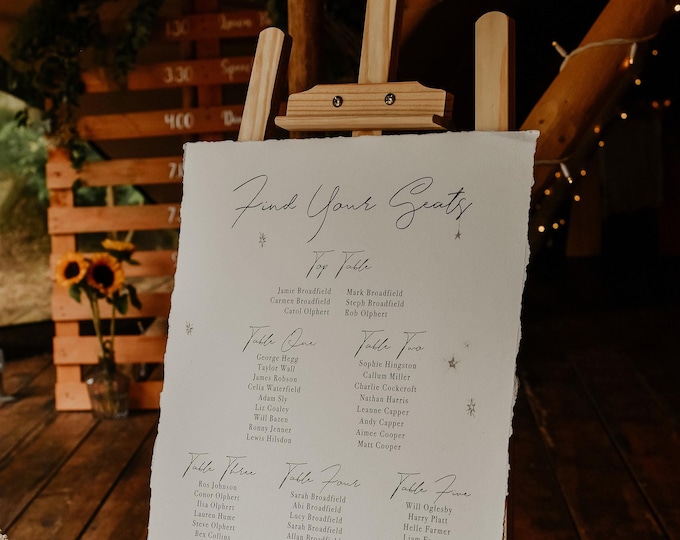 1.30
Spee
4.00
7.
Find Your Seats
Top Table
Jamie Broadfield
Carmen Broadfield
Carol Olphert
Mark Broadfield
Steph Broadfield
Rob Olphert
Table One
George Hegg
Taylor Wall
James Robson
Celia Waterfield
Adam Sly
Liz Goaley
Will Bazen
Ronny Jenner
Lewis Hilsdon
Table Two
Sophie Hingston
Callum Miller
Charlie Cockcroft
Nathan Harris
Leanne Capper
Andy Capper
Aimee Cooper
Matt Cooper
Table Three
Ros Johnson
Conor Olphert
Ilsa Olphert
Lauren Hume
Steve Olphert
Rex Collins
Table Four
Sarah Broadfield
Abi Broadfield
Lucy Broadfield
Sarah Broadfield
Allan Broadfield
Table Five
Will Oglesby
Harry Platt
Helle Farmer
Liam Farmer